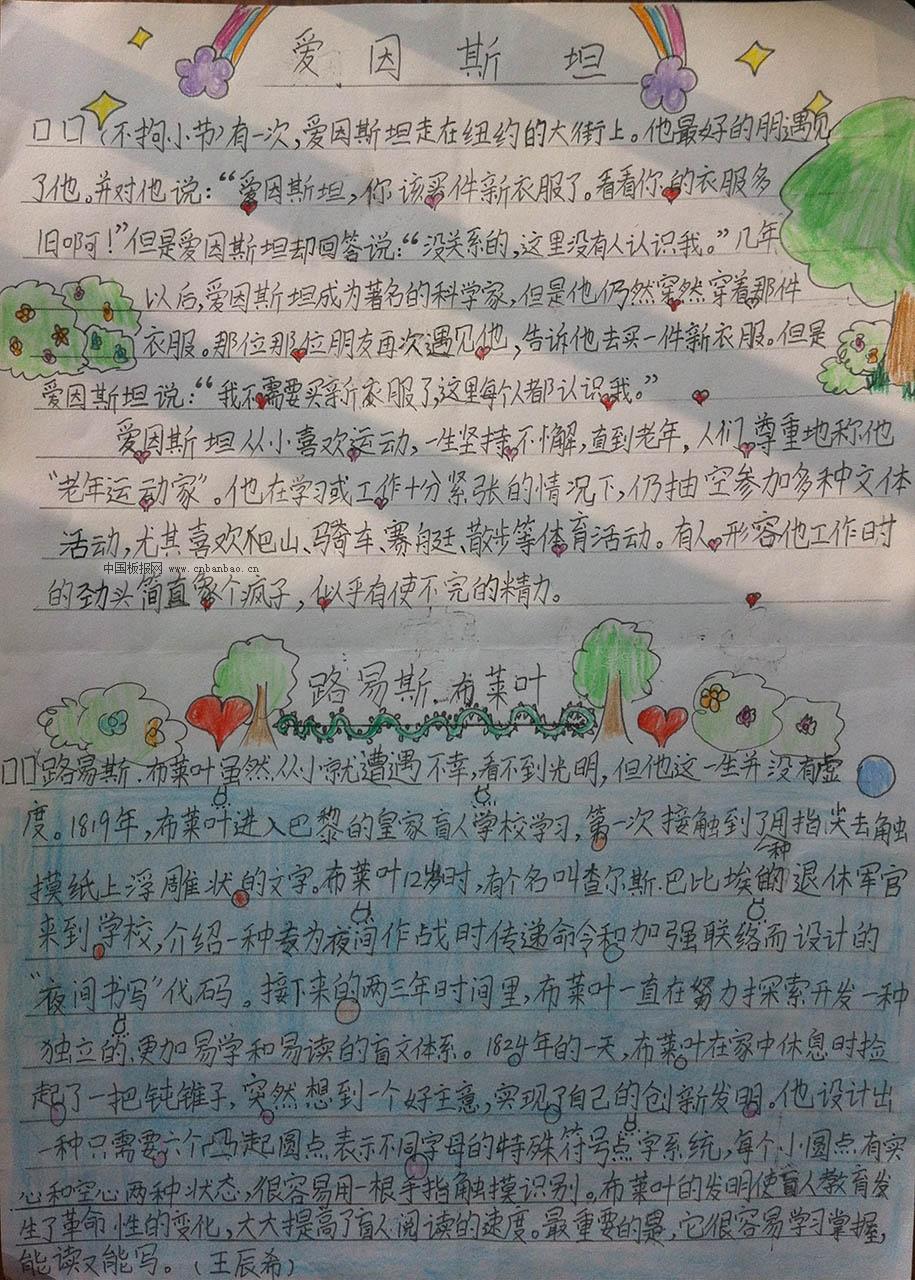 爱因斯坦
口口（不拘小节）有一次，爱因斯坦走在纽约的大街上。他最好的朋遇见
了他。并对他说：“爱因斯坦，你该买件新衣服了。看看你的衣服多
旧啊！”但是爱因斯坦却回答说：“没关系的，这里没有人认识我。”几年
以后，爱因斯坦成为著名的科学家，但是他仍然突然穿着那件
衣服。那位那位朋友再次遇见他，告诉他去买一件新衣服。但是
爱因斯坦说：“我不需要买新衣服了，这里每个人都认识我。”
爱因斯坦从小喜欢运动，一生坚持不懈，直到老年，人们尊重地称他
“老年运动家”。他在学习或工作十分紧张的情况下，仍抽空参加多种文体
活动，尤其喜欢爬山、骑车、赛艇、散步等体育活动。有人形容他工作时
中国板报网 www.cnbanbao.cn
的劲头简直象个疯子，似乎有使不完的精力。
路易斯.布莱叶
口口路易斯.布莱叶虽然从小就遭遇不幸，看不到光明，但他这一生并没有虚
度。1819年，布莱叶进入巴黎的皇家盲人学校学习，第一次接触到了用指尖去触
摸纸上浮雕状的文字。布莱叶12岁时，有个名叫查尔斯.巴比埃的退休军官
来到学校，介绍一种专为夜间作战时传递命令和加强联络而设计的
“夜间书写”代码。接下来的两三年时间里，布莱叶一直在努力探索开发一种
独立的、更加易学和易读的盲文体系。1824年的一天，布莱叶在家中休息时捡
起了一把钝锥子，突然想到一个好主意，实现了自己的创新发明。他设计出
一种只需要六个凸起圆点表示不同字母的特殊符号点字系统，每个小圆点有实
心和空心两种状态，很容易用一根手指触摸识别。布莱叶的发明使盲人教育发
生了革命性的变化，大大提高了盲人阅读的速度。最重要的是，它很容易学习掌握，
能读又能写。（王辰希）